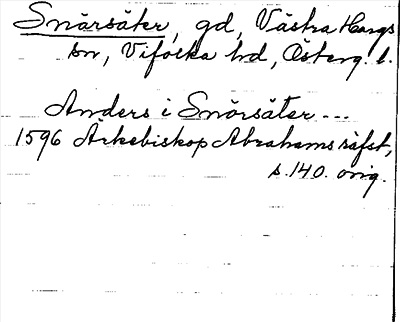 Snörsäter, gd, Västra Hargs
sn, Vifolka hd, Österg. l.
Anders i Snörsäter ---
1596 Ärkebiskop Abrahams räfst,
s. 140. orig.